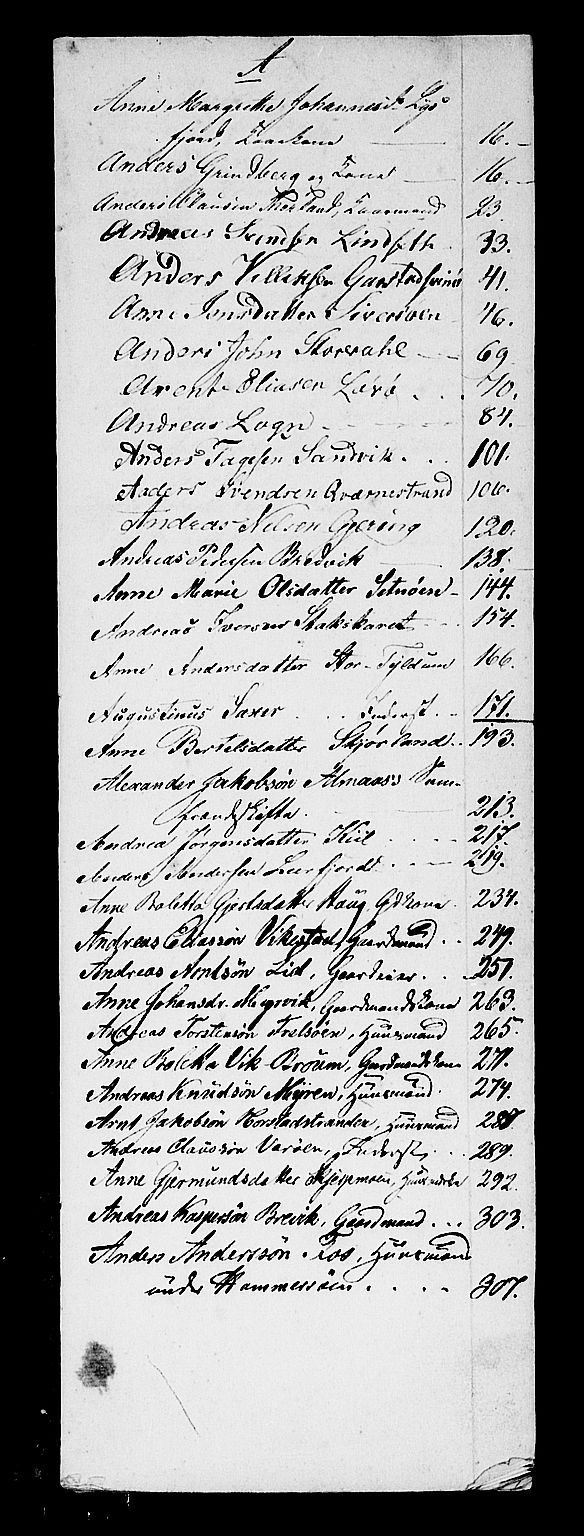 A
Anne Margrethe Johannesdr. Lys-
fjord, Kaarkone 16.
Anders Grindberg og Kone 16.
Anders Clausen Kaarmand 23
Andreas Svendsen Lindseth 33.
Anders Villeksen 41.
Anne Jonsdatter Siverdsen 46.
Anders John Storvahl 69
Arent Eliasen Lovø 70.
Andreas Logn 84.
Anders Tagesen Sandvik 101.
Anders Svendsen Qvarnestrand 106.
Andreas Nilsen Gjering 120.
Andreas Pedersen Bredvik 138.
Anne Marie Olsdatter Setnøen 144.
Andreas Iversen Stokskaret 154.
Anne Andersdatter Stor-Tjldum 166
Augustinus Saxer Inderst 171.
Anne Bertelsdatter Skjørland 193.
Alexander Jakobsøn Almaas's Sam-
frændeskifte 213.
Andrea Jørgensdatter Kiil 217.
Anders Andersen Leerfjord 219.
Anne Boletta Gjertsdatter Haug, Gdkone 234.
Andreas Eliassøn Vikestad, Gaardmand 249.
Andreas Arntsøn Lid, Gaardeier 257.
Anne Johansdr. Myrvik, Gaardmandskone 263.
Andreas Torstensøn Trelsøen, Huusmand 265.
Anne Boletta Vik Brøum, Gaardmandskone 271.
Andreas Knudsøn Myren, Huusmand 274.
Arnt Jakobsøn Horstadstranden, Huusmand 287
Andreas Claussøn Varøen, Inderst 289.
Anne Gjermundsdatter 292.
Andreas Kaspersøn Brevik, Gaardmand 303.
Anders Anderssøn Fos, Huusmand
under Hammersøen 307.